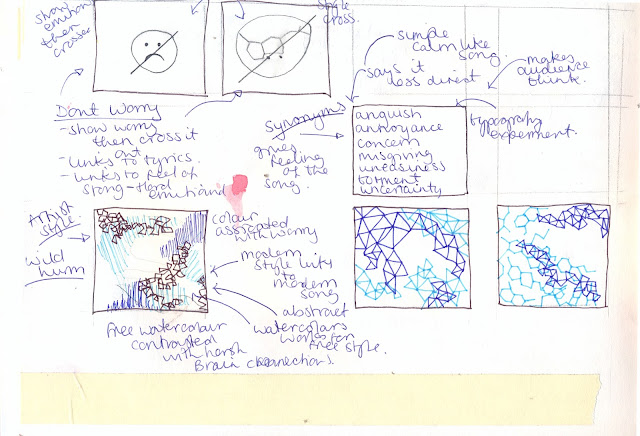 show
emotion
then
crosses
style
cross.
Don't Worry
- show worry
then cross it
out
- Links to lyrics.
- links to feel of
song - Hard
emotional
Synonyms
gives
feeling
of the
song.
simple
calm like
song.
says it
less direct
makes
audience
think.
anguish
annoyance
concern
misgiving
uneasiness
torment
uncertainty
typography
experiment.
Artist
Style.
wild
hum
colour
associated
with worry
modern
style links
to
modern
song
abstract
watercolours
free style.
Free watercolour
contrasted
with harsh
Brain connections.